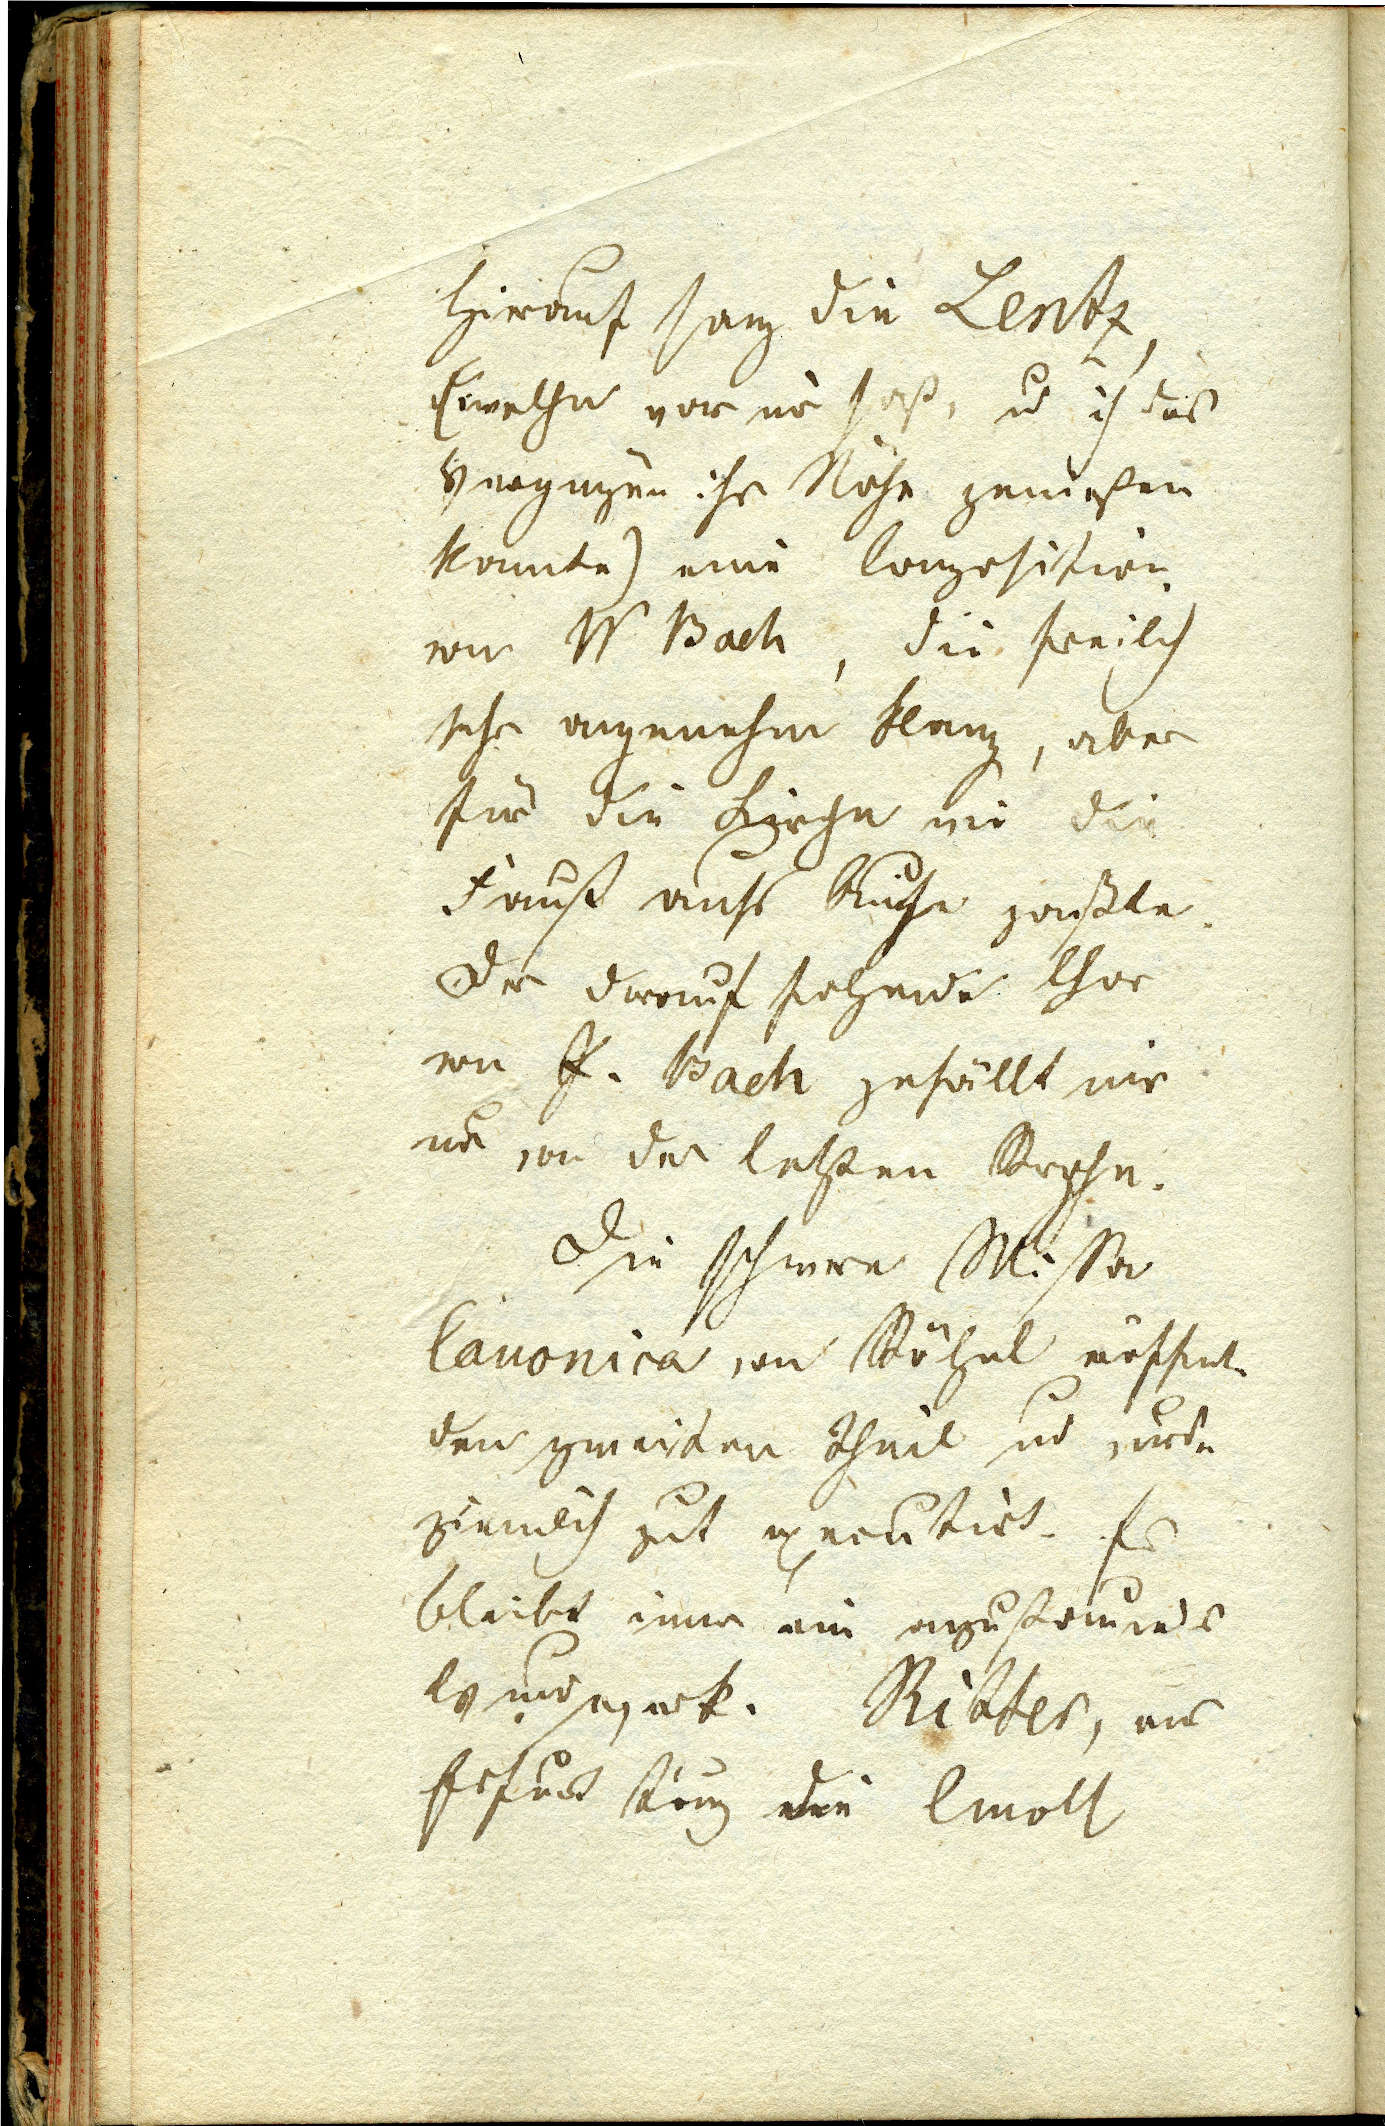 Hierauf sang die Lentz,
(welche vor mir saß, u ich das
Vergnügen ihr Nähe genießen
konnte) eine Composition
von W Bach, die freilich
sehr angenehm klang, aber
für die Kirche wie die
Faust aufs Auge paßte.
Der darauf folgende Chor
von F. Bach gefällt mir
nur von der letzten
Die schwere Missa
Canonica von eröffnet
den zweiten Theil und wurde
ziemlich gut executirt. Es
bleibt immer ein anzustaunendes
Wunderwerk. Ritter, aus
Erfurt trug die Cmoll